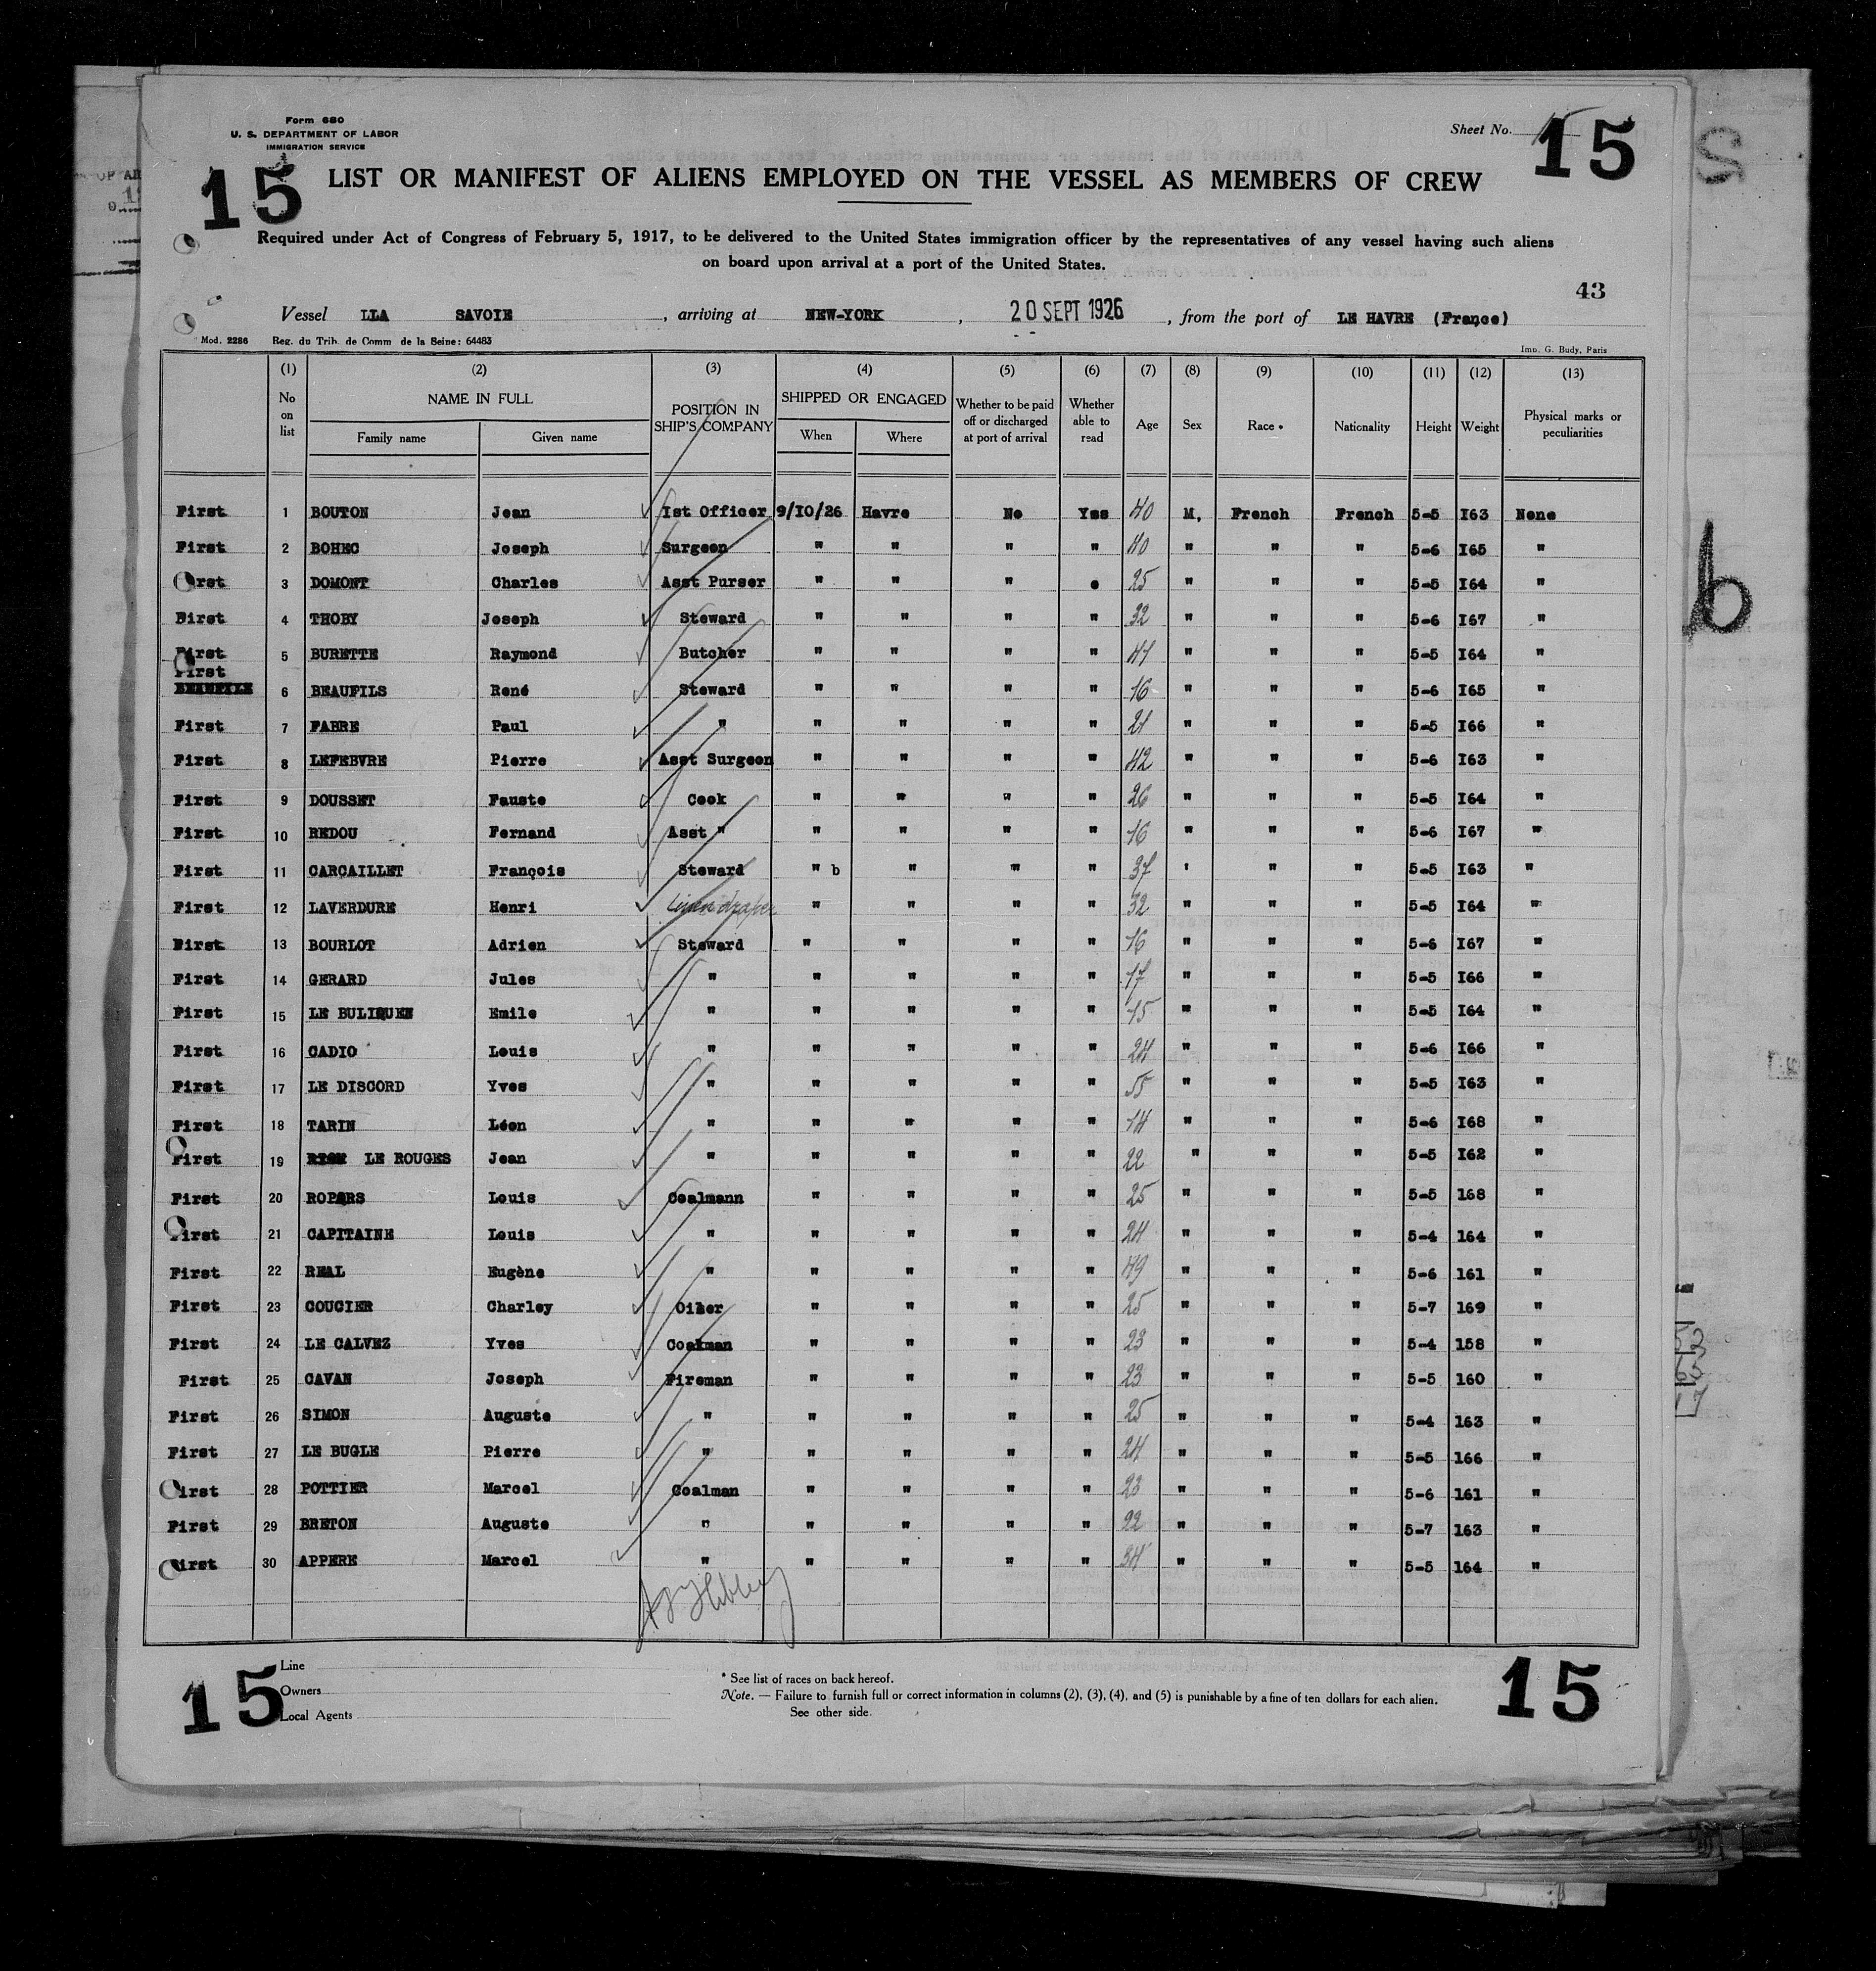 Form 680
U. S. DEPARTMENT OF LABOR
IMMIGRATION SERVICE
Sheet No. 15
15
15
LIST OR MANIFEST OF ALIENS EMPLOYED ON THE VESSEL AS MEMBERS OF CREW
Required under Act of Congress of February 5, 1917, to be delivered to the United States immigration officer by the representatives of any vessel having such aliens
on board upon arrival at a port of the United States.
43
Vessel LLA SAVOIE, arriving at NEW-YORK, 20 SEPT 1926, from the port of LE HAVRE (France)
Mod. 2286 Reg. du Trib. de Comm de la Seine: 64483 Imp. G. Budy, Paris
(1) (2) (3) (4) (5) (6) (7) (8) (9) (10) (11) (12) (13)
No on list NAME IN FULL Family name Given name POSITION IN SHIP'S COMPANY SHIPPED OR ENGAGED When Where Whether to be paid off or discharged at port of arrival Whether able to read Age Sex Race * Nationality Height Weight Physical marks or peculiarities
First 1 BOUTON Jean Ist Officer 9/10/26 Havre No Yes 40 M, French French 5-5 I63 None
First 2 BOHEC Joseph Surgeon " " " " 40 " " " 5-6 I65 "
First 3 DOMONT Charles Asst Purser " " " " 25 " " " 5-5 I64 "
First 4 THOBY Joseph Steward " " " " 32 " " " 5-6 I67 "
First 5 BURETTE Raymond Butcher " " " " 41 " " " 5-5 I64 "
First 6 BEAUFILS René Steward " " " " 16 " " " 5-6 I65 "
First 7 FABRE Paul " " " " " 21 " " " 5-5 I66 "
First 8 LEFEBVRE Pierre Asst Surgeon " " " " 42 " " " 5-6 I63 "
First 9 DOUSSET Fauste Cook " " " " 26 " " " 5-5 I64 "
First 10 REDOU Fernand Asst " " " " " 16 " " " 5-6 I67 "
First 11 CARCAILLET François Steward " b " " " 37 ' " " 5-5 I63 "
First 12 LAVERDURE Henri Linen draper " " " " 32 " " " 5-5 I64 "
First 13 BOURLOT Adrien Steward " " " " 16 " " " 5-6 I67 "
First 14 GERARD Jules " " " " " 17 " " " 5-5 I66 "
First 15 LE BULIQUEN Emile " " " " " 15 " " " 5-5 I64 "
First 16 CADIO Louis " " " " " 24 " " " 5-6 I66 "
First 17 LE DISCORD Yves " " " " " 55 " " " 5-5 I63 "
First 18 TARIN Léon " " " " " 14 " " " 5-6 I68 "
First 19 LE ROUGES Jean " " " " " 22 " " " 5-5 I62 "
First 20 ROPARS Louis Coalmann " " " " 25 " " " 5-5 168 "
First 21 CAPITAINE Louis " " " " " 24 " " " 5-4 164 "
First 22 REAL Eugène " " " " " 49 " " " 5-6 161 "
First 23 COUCIER Charley Oiler " " " " 25 " " " 5-7 169 "
First 24 LE CALVEZ Yves Coalman " " " " 23 " " " 5-4 158 "
First 25 CAVAN Joseph Fireman " " " " 23 " " " 5-5 160 "
First 26 SIMON Auguste " " " " " 25 " " " 5-4 163 "
First 27 LE BUGLE Pierre " " " " " 24 " " " 5-5 166 "
First 28 POTTIER Marcel Coalman " " " " 23 " " " 5-6 161 "
First 29 BRETON Auguste " " " " " 22 " " " 5-7 163 "
First 30 APPERE Marcel " " " " " 34 " " " 5-5 164 "
Line
Owners
Local Agents
* See list of races on back hereof.
Note. — Failure to furnish full or correct information in columns (2), (3), (4), and (5) is punishable by a fine of ten dollars for each alien.
See other side.
15
15
b